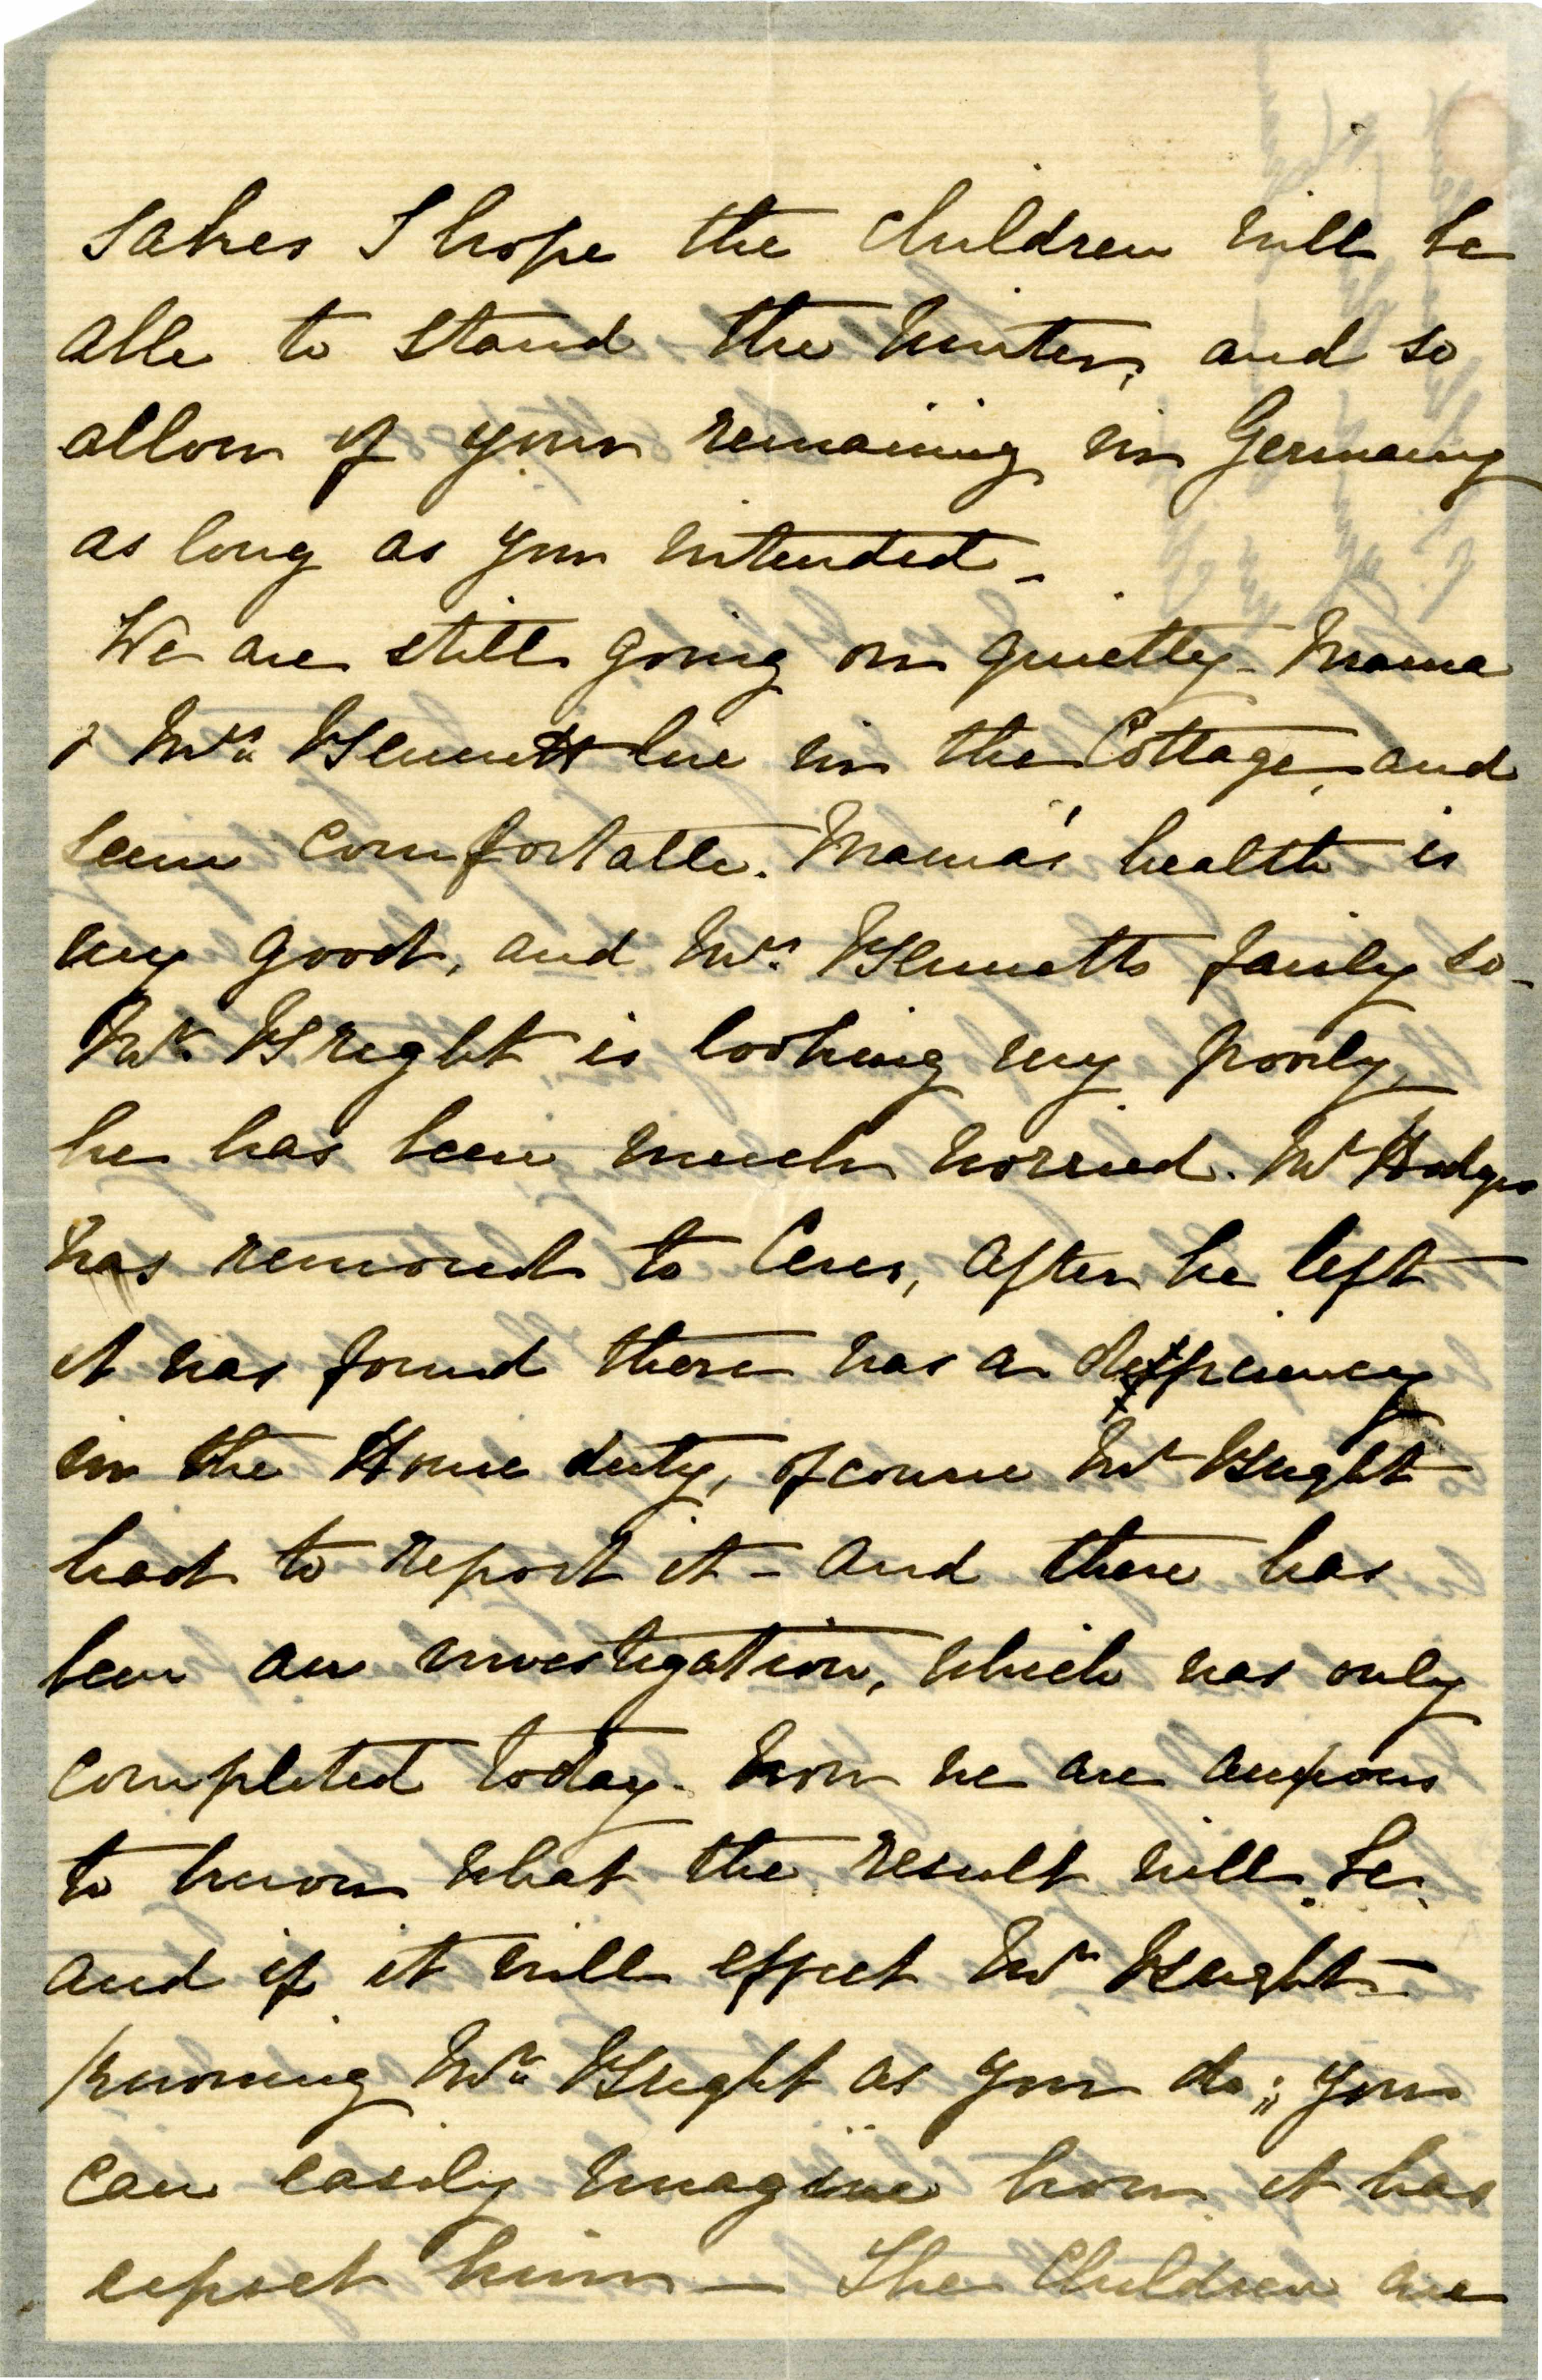 sakes I hope the children will be
able to stand the winter, and so
allow of your remaining in Germany
as long as you intended_
We are still going on quietly_ Mama
& Mrs. Blennett live in the Cottage, and
seem comfortable. Mama's health is
very good, and Mrs. Blennetts fairly so_
Mr. Bright is looking very poorly,
he has been much worried. Mr Hodges
was removed to Ceres, after he left
it was found there was a deficiency
in the House duty, of course Mr Bright
had to report it _ and there has
been an investigation, which was only
completed today. Now we are anxious
to know what the result will be.
and if it will effect Mr Bright _
Knowing Mr. Bright as you do; you
can easily imagine how it has
upset him _ The Children are